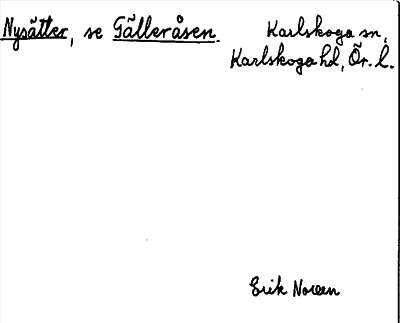 Nysätter, se Gälleråsen. Karlskoga sn,
Karlskoga hd, Ör. l.
Erik Noreen